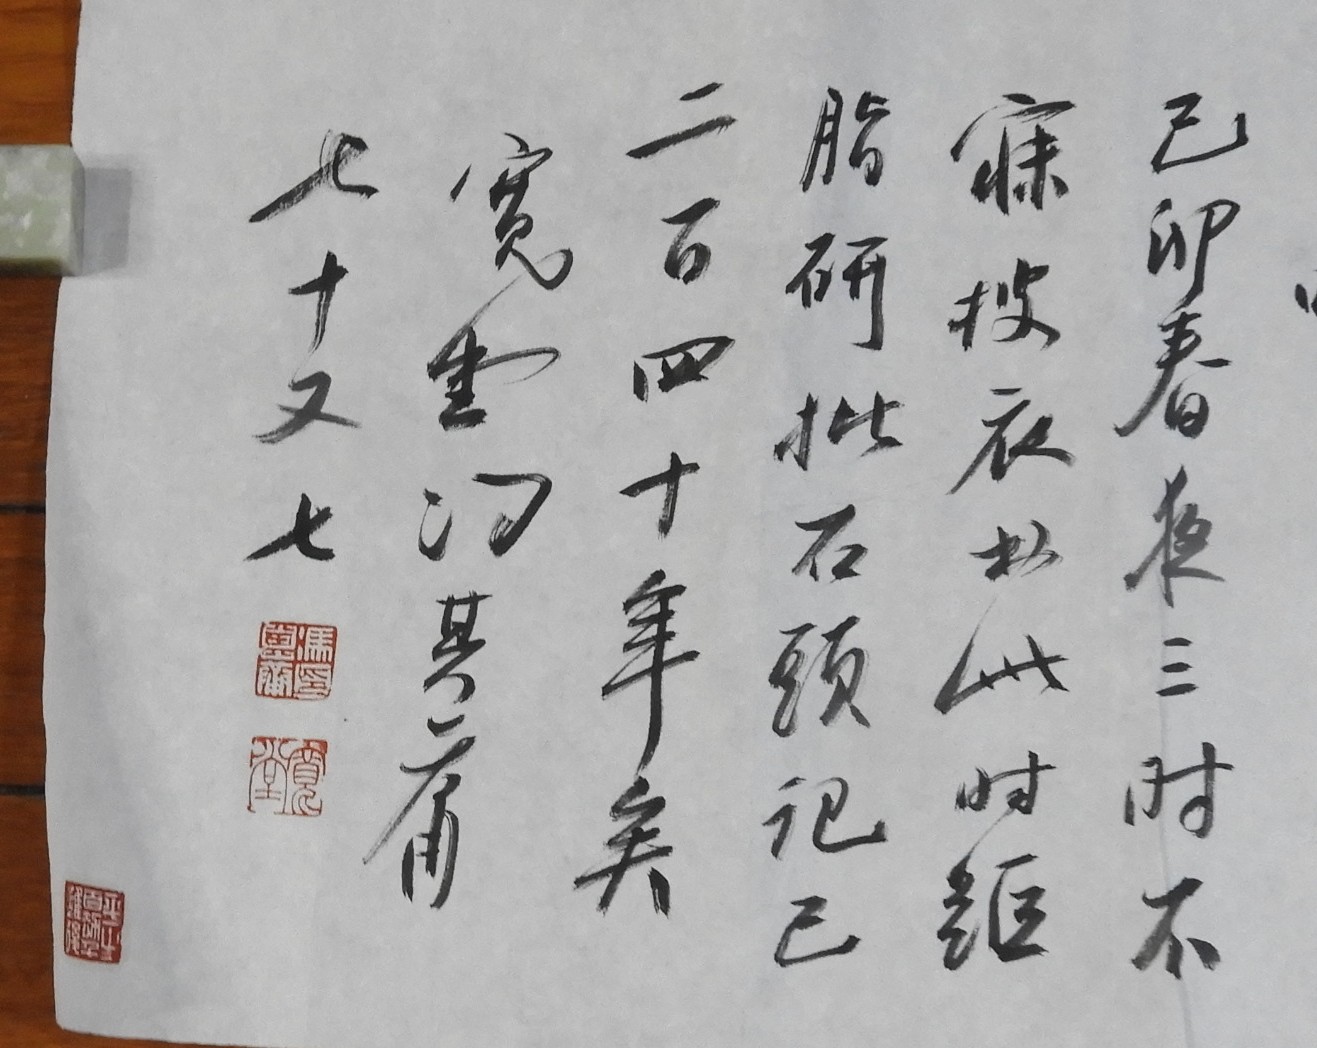 己卯春夜三时不
寐披衣书此时距
脂研批石頭记已
二百四十年矣
寬堂冯其庸
七十又七
馮印其庸
寬堂